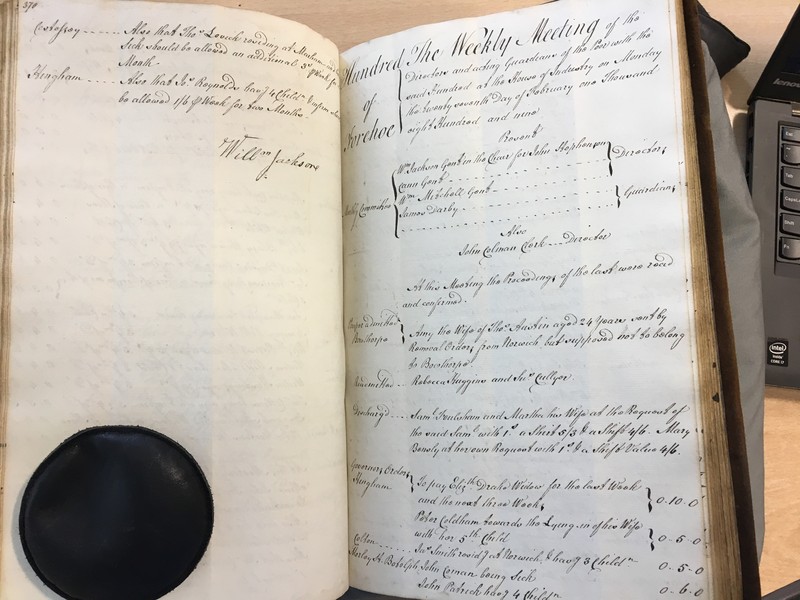 370
Costessy ...... Also that Thos. Lovick residing at
Sick should be allowed an additional 3s. ℔ Week for
Month
Hingham ...... Also that Js. Reynolds havg. 4 Childn.
be allowed 1/6 ℔ Week for two Months.
Willm. Jackson
Hundred
of
Forehoe
The Weekly Meeting of the
Directors and acting Guardians of the Poor with the
said Hundred at the House of Industry on Monday
the twenty seventh Day of February one Thousand
eight Hundred and nine
Present
Wm. Jackson Gent in the Chair for John Stephenson
Cann Gent
Directors
Weekly Committee
Wm. Mitchell Gent
James Darby
Guardians
Also
John Colman Clerk Director
At this Meeting the Proceedings of the last were read
and confirmed.
Bowthorpe
Amy the Wife of Thos. Austin aged 24 Years sent by
Removal Orders from Norwich but supposed not to belong
to Bowthorpe
Readmitted .. Rebecca Huggins and Jas. Cullyer
Discharged .... Saml. and Martha his Wife at the Request of
the said Saml. with 1s. a Shirt 5/3 & a Shift 4/6. Mary
at her own Request with 1s. & a Shift Value 4/6.
Governors Orders
Hingham
To pay Elizth. Drake Widow for the last Week
and the next three Weeks
0..10..0
Peter Coldham towards the Lying in of his Wife
with her 5th. Child
0..5..0
Colton ...... Jas. Smith residg. at Norwich, & havg. 3 Childn.
0..5..0
Morley St. Botolph John Coman being Sick
0..6..0
John Patrick havg. 4 Childn.
lenovo
Esc
Tab
Shift
Fn
intel
inside
CORE i7